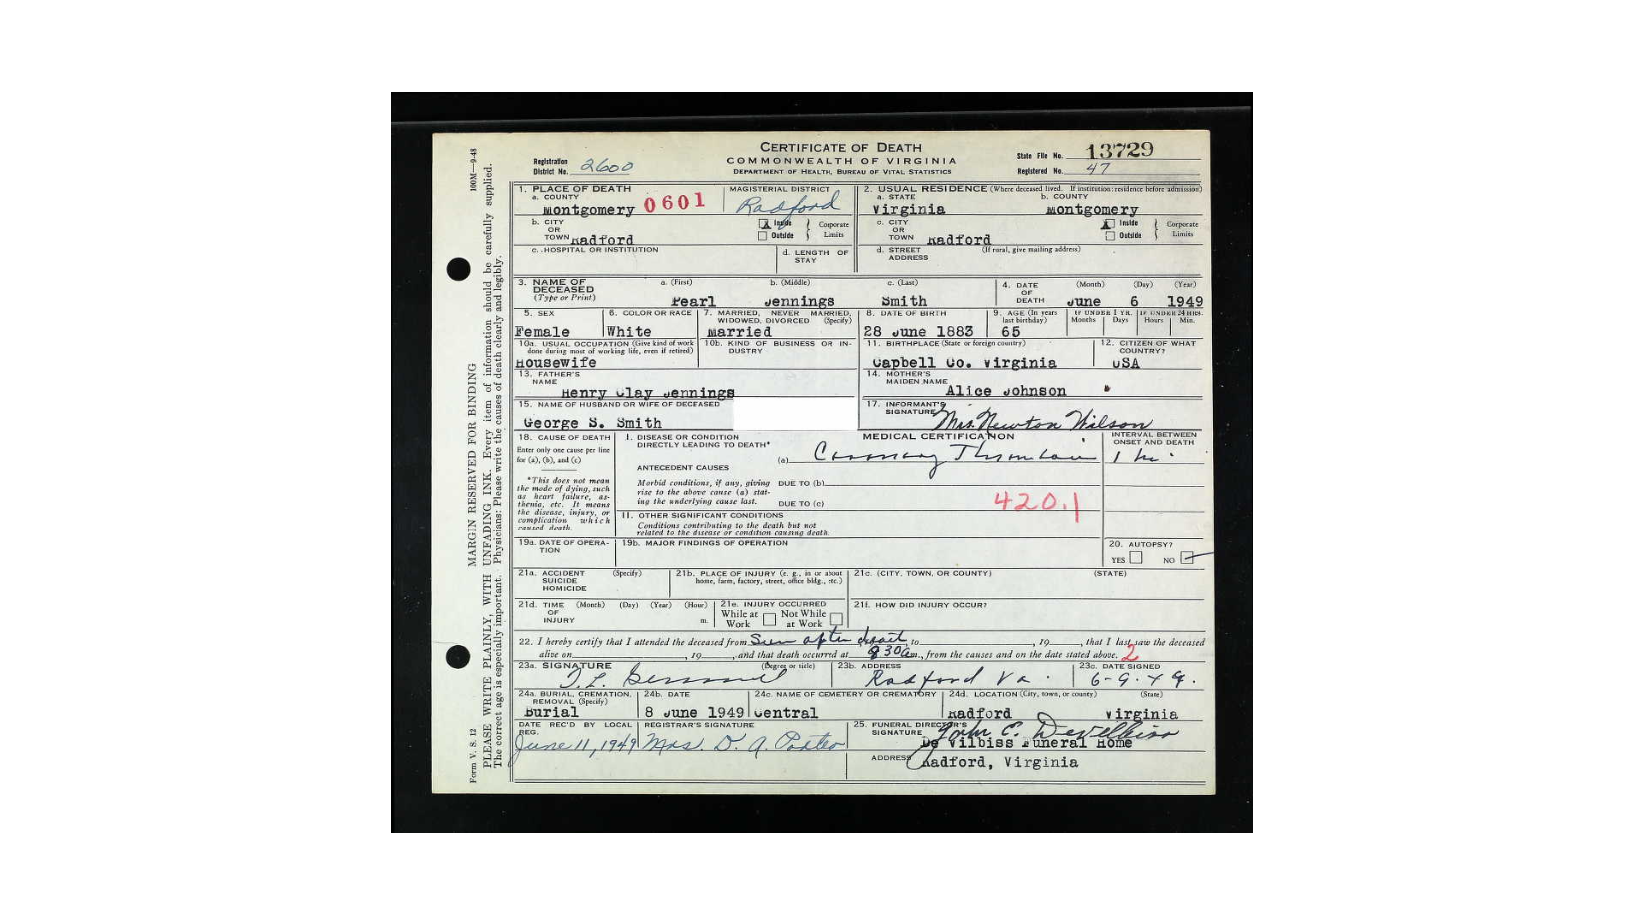 CERTIFICATE OF DEATH
COMMONWEALTH OF VIRGINIA
DEPARTMENT OF HEALTH, BUREAU OF VITAL STATISTICS
Registration District No. 2600
State File No. 13729
Registered No. 47
1. PLACE OF DEATH
a. COUNTY
Montgomery 0601
MAGISTERIAL DISTRICT
Radford
b. CITY OR TOWN Radford
Inside Outside Corporate Limits
c. HOSPITAL OR INSTITUTION
d. LENGTH OF STAY
2. USUAL RESIDENCE (Where deceased lived. If institution: residence before admission)
a. STATE b. COUNTY
Virginia Montgomery
c. CITY OR TOWN Radford
Inside Outside Corporate Limits
d. STREET ADDRESS (If rural, give mailing address)
3. NAME OF DECEASED (Type or Print)
a. (First) b. (Middle) c. (Last)
Pearl Jennings Smith
4. DATE OF DEATH (Month) (Day) (Year)
June 6 1949
5. SEX
Female
6. COLOR OR RACE
White
7. MARRIED, NEVER MARRIED, WIDOWED, DIVORCED (Specify)
Married
8. DATE OF BIRTH
28 June 1883
9. AGE (In years last birthday)
65
IF UNDER 1 YR. IF UNDER 24 HRS.
Months Days Hours Min.
10a. USUAL OCCUPATION (Give kind of work done during most of working life, even if retired)
Housewife
10b. KIND OF BUSINESS OR INDUSTRY
11. BIRTHPLACE (State or foreign country)
Capbell Co. Virginia
12. CITIZEN OF WHAT COUNTRY?
USA
13. FATHER'S NAME
Henry Clay Jennings
14. MOTHER'S MAIDEN NAME
Alice Johnson
15. NAME OF HUSBAND OR WIFE OF DECEASED
George S. Smith
17. INFORMANT'S SIGNATURE Mrs. Newton Wilson
18. CAUSE OF DEATH
Enter only one cause per line for (a), (b), and (c)
*This does not mean the mode of dying, such as heart failure, asthenia, etc. It means the disease, injury, or complication which caused death.
MEDICAL CERTIFICATION
INTERVAL BETWEEN ONSET AND DEATH
I. DISEASE OR CONDITION DIRECTLY LEADING TO DEATH*
(a) Coronary
ANTECEDENT CAUSES
Morbid conditions, if any, giving rise to the above cause (a) stating the underlying cause last.
DUE TO (b)
DUE TO (c)
420.1
II. OTHER SIGNIFICANT CONDITIONS
Conditions contributing to the death but not related to the disease or condition causing death.
19a. DATE OF OPERATION
19b. MAJOR FINDINGS OF OPERATION
20. AUTOPSY?
YES NO
21a. ACCIDENT SUICIDE HOMICIDE (Specify)
21b. PLACE OF INJURY (e. g., in or about home, farm, factory, street, office bldg., etc.)
21c. (CITY, TOWN, OR COUNTY) (STATE)
21d. TIME OF INJURY (Month) (Day) (Year) (Hour) m.
21e. INJURY OCCURRED
While at Work Not While at Work
21f. HOW DID INJURY OCCUR?
22. I hereby certify that I attended the deceased from Seen after death to , 19 , that I last saw the deceased
alive on , 19 , and that death occurred at 8 30a m., from the causes and on the date stated above. 2
23a. SIGNATURE (Degree or title)
23b. ADDRESS
Radford Va.
23c. DATE SIGNED
6-9-49.
24a. BURIAL, CREMATION, REMOVAL (Specify)
Burial
24b. DATE
8 June 1949
24c. NAME OF CEMETERY OR CREMATORY
Central
24d. LOCATION (City, town, or county) (State)
Radford Virginia
DATE REC'D BY LOCAL REG.
June 11, 1949
REGISTRAR'S SIGNATURE
Mrs. D. A. Porter
25. FUNERAL DIRECTOR'S SIGNATURE John C. DeVilbiss
De Vilbiss Funeral Home
ADDRESS Radford, Virginia
Form V. S. 12
100M—9-48
MARGIN RESERVED FOR BINDING
PLEASE WRITE PLAINLY, WITH UNFADING INK. Every item of information should be carefully supplied.
The correct age is especially important. Physicians: Please write the causes of death clearly and legibly.